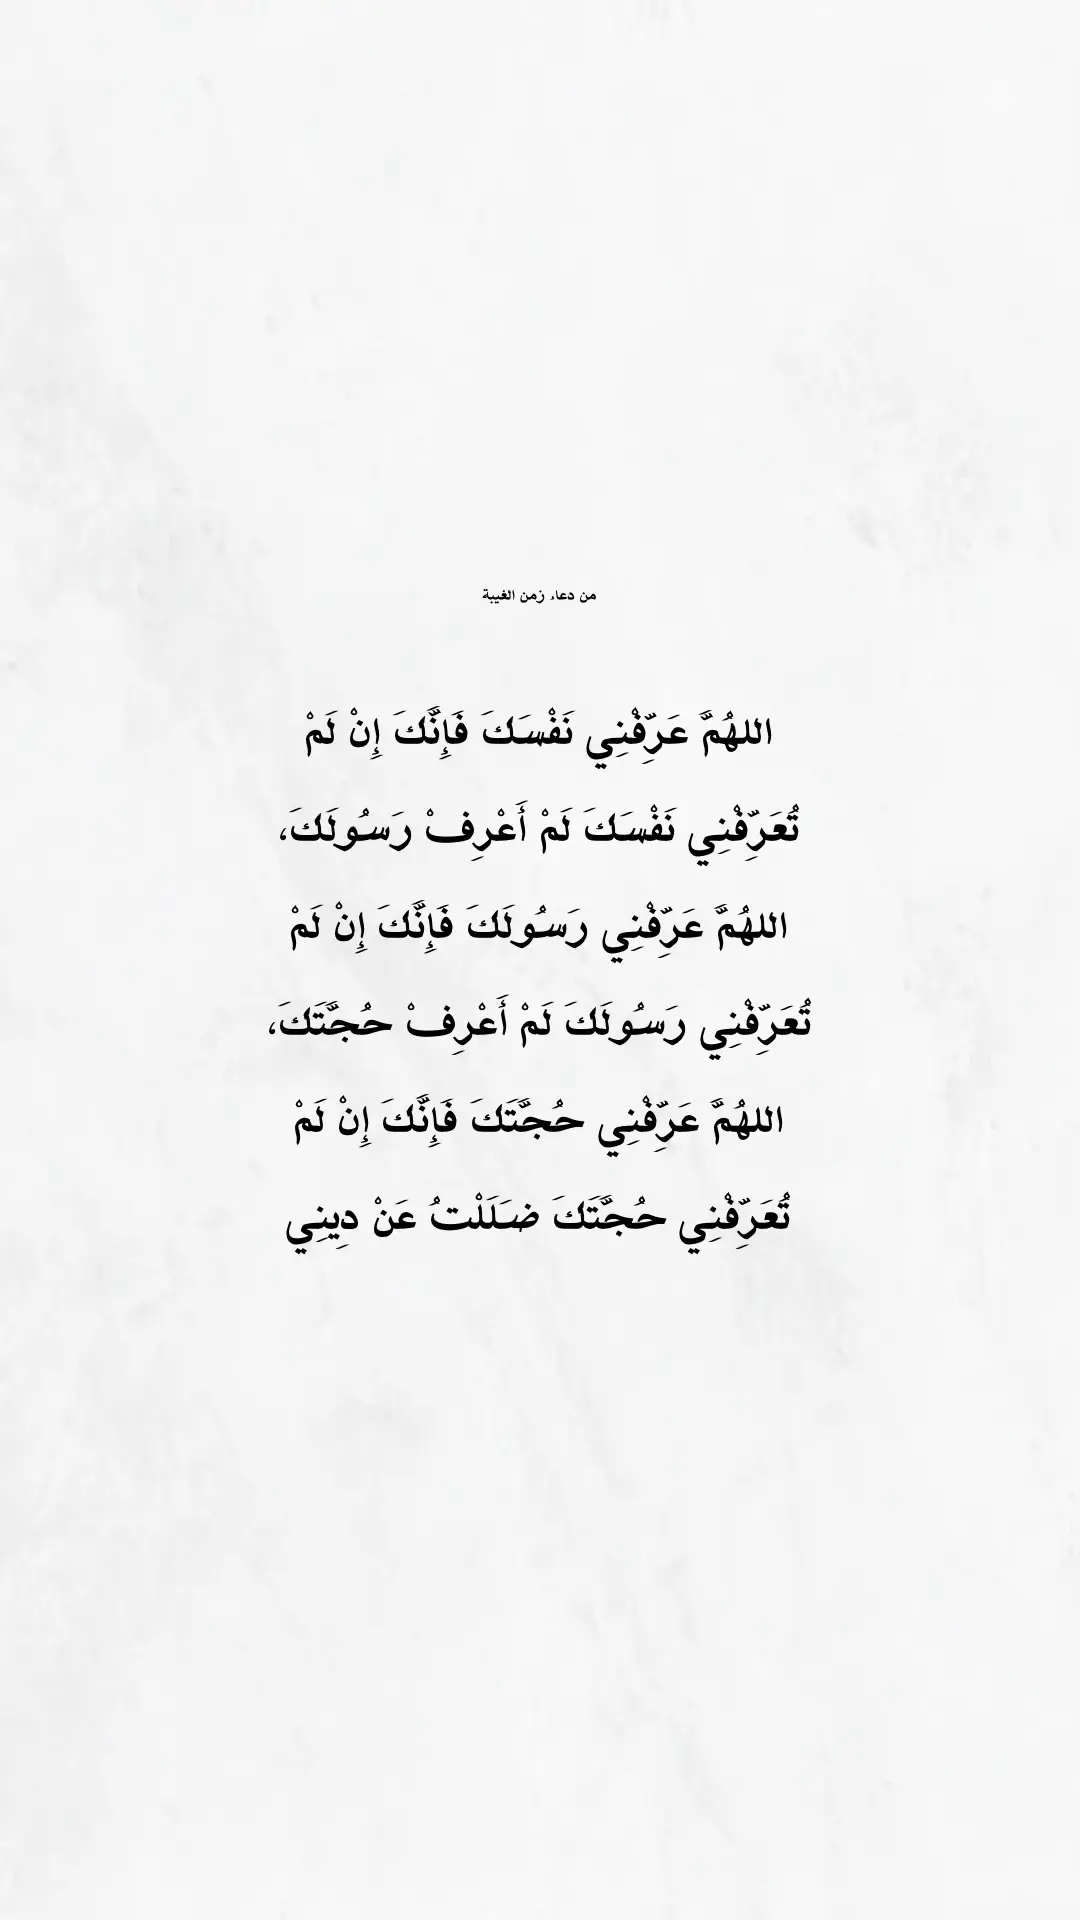 من دعاء زمن الغيبة
اللهُمَّ عَرِّفْنِي نَفْسَكَ فَإِنَّكَ إِنْ لَمْ
تُعَرِّفْنِي نَفْسَكَ لَمْ أَعْرِفْ رَسُولَكَ،
اللهُمَّ عَرِّفْنِي رَسُولَكَ فَإِنَّكَ إِنْ لَمْ
تُعَرِّفْنِي رَسُولَكَ لَمْ أَعْرِفْ حُجَّتَكَ،
اللهُمَّ عَرِّفْنِي حُجَّتَكَ فَإِنَّكَ إِنْ لَمْ
تُعَرِّفْنِي حُجَّتَكَ ضَلَلْتُ عَنْ دِينِي